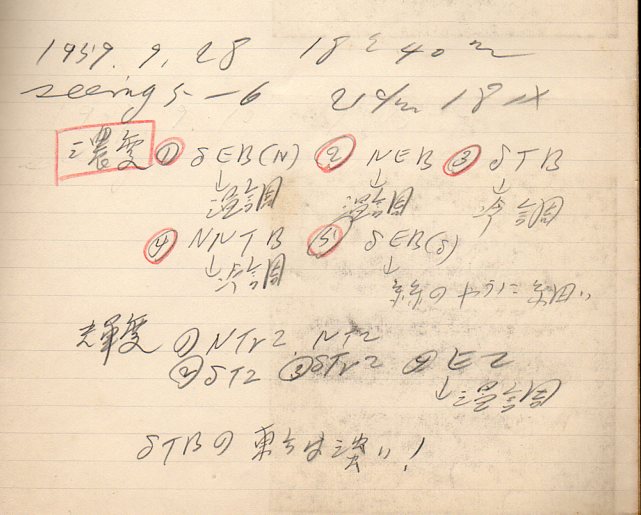 1959. 9. 28 18h 40m
seeing 5-6 21cm 18×
濃度 ① SEB(N) ② NEB ③ STB
↓ ↓ ↓
温調 温調 冷調
④ NNTB ⑤ SEB(S)
↓ ↓
冷調 糸のように細い
輝度 ① NTrZ NTZ
② STZ ③ STrZ ④ EZ
↓温調
STBの東方は淡い!